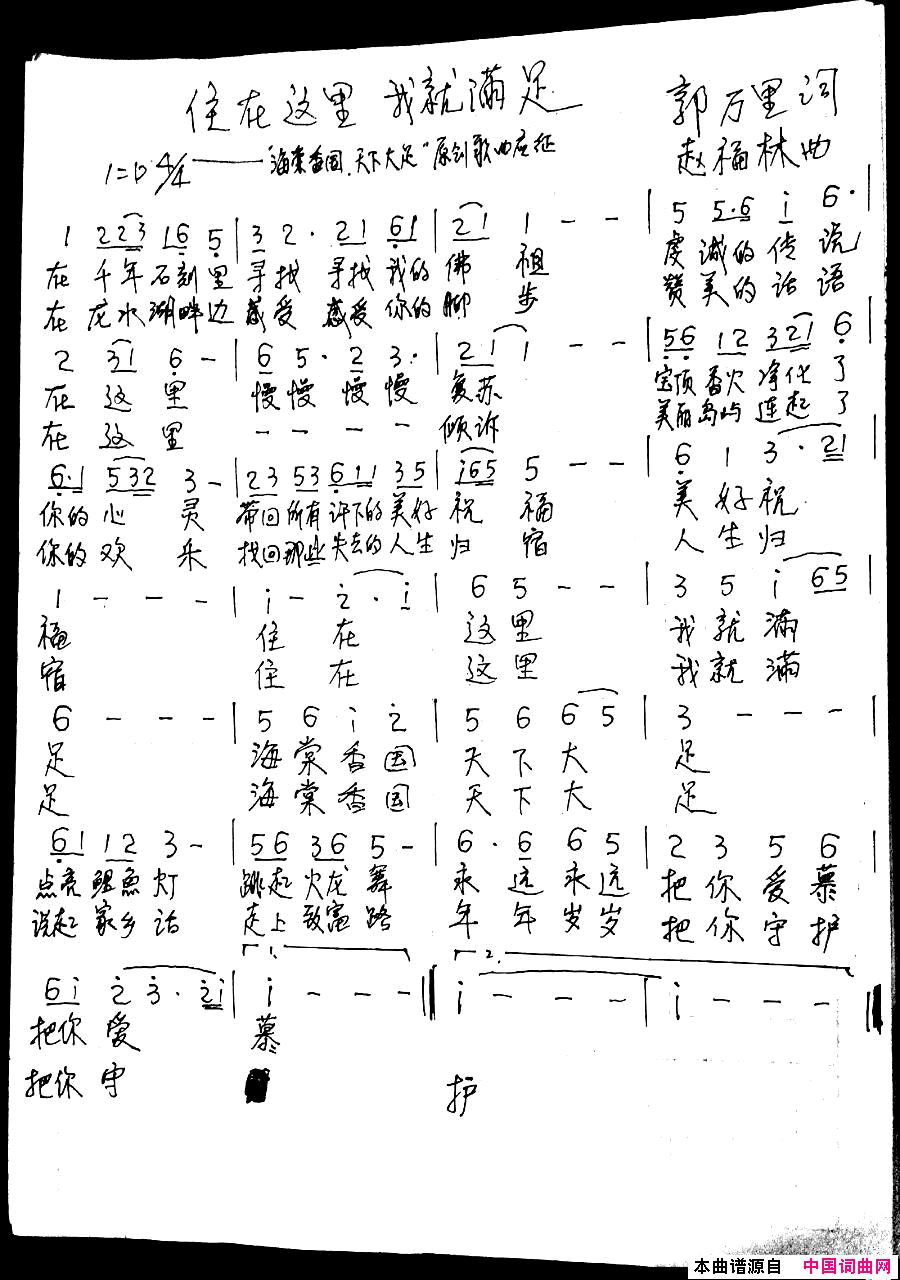 住在这里 我就满足
郭万里 词
1=D 4/4 ——"海棠香国、天下大足"原创歌曲应征
赵福林 曲
1 2 2 3 1 6 5 | 3 2 · 2 1 6 1 | 2 1 1 - - | 5 5 · 6 i 6 · |
在 千年石刻里 寻找 寻找我的 佛 祖 虔诚的传说
在 龙水湖畔边 感受 感受你的 脚 步 赞美的话语
2 3 1 6 - | 6 5 · 2 3 · | 2 1 1 - - | 5 6 1 2 3 2 1 6 |
在 这 里 慢慢 慢慢 复苏 宝顶香火净化了
在 这 里 - - - - 倾诉 美丽岛屿连起了
6 · 1 5 3 2 3 - | 2 3 5 3 6 1 1 3 5 | i 6 5 5 - - | 6 1 3 · 2 1 |
你的心 灵 带回所有许下的美好 祝 福 美好祝
你的欢 乐 找回那些失去的人生 归 宿 人生归
1 - - - | i - 2 · i | 6 5 - - | 3 5 i 6 5 |
福 住 在 这里 我就满
宿 住 在 这里 我就满
6 - - - | 5 6 i 2 | 5 6 6 5 | 3 - - - |
足 海棠香国 天下大 足
足 海棠香国 天下大 足
6 1 1 2 3 - | 5 6 3 6 5 - | 6 · 6 6 5 | 2 3 5 6
点亮鲤鱼灯 跳起火龙舞 永远永远 把你爱慕
说起家乡话 走上致富路 年年岁岁 把你守护
1. 2.
6 i 2 3 · 2 i | i - - - ‖ i - - - | i - - - ‖
把你 爱 慕
把你 守 护
本曲谱源自 中国词曲网